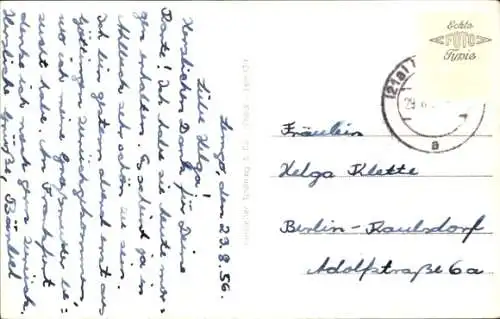 Lemgo, den 29.8.56.
Liebe Helga!
Herzlichen Dank für Deine
Karte! Ich habe sie heute mor-
gen erhalten. Es scheint ja in
sehr schön zu sein.
Ich bin gestern abend erst aus
Göttingen zurückgekommen,
wo ich meine Großmutter be-
sucht habe. An Frankfurt
denke ich noch gern zurück.
Herzliche Grüße, Bärbel
Echte
FOTO
Typie
(21a)
29.8.
a
Fräulein
Helga Klette
Berlin-Kaulsdorf
Adolfstraße 6a